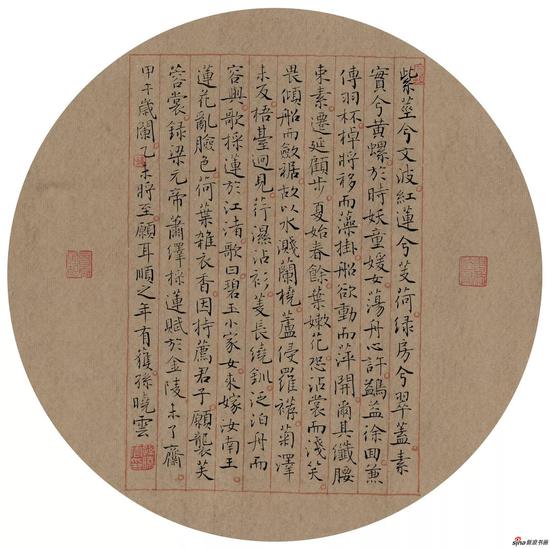 紫莖兮文波紅蓮兮芰荷緑房兮翠蓋素
實兮黃螺於時妖童媛女蕩舟心許鷁益徐回兼
傳羽杯棹將移而藻掛船欲動而萍開爾其纖腰
束素遷延顧步夏始春餘葉嫩花恐沾裳而淺笑
畏傾船而斂裾故以水濺蘭橈蘆侵羅䙓菊澤
未反梧臺迥見荇濕沾衫菱長繞釧泛泊舟而
容與歌採蓮於江渚歌曰碧玉小家女來嫁汝南王
蓮花亂臉色荷葉雜衣香因持薦君子願襲芙
蓉裳録梁元帝蕭繹採蓮賦於金陵未了齋
甲午歲闌乙未將至願耳順之年有獲孫曉雲
sina新浪书画